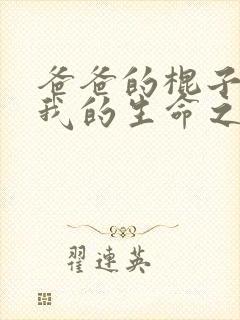 爸爸的棍子
我的生命之
翟連英